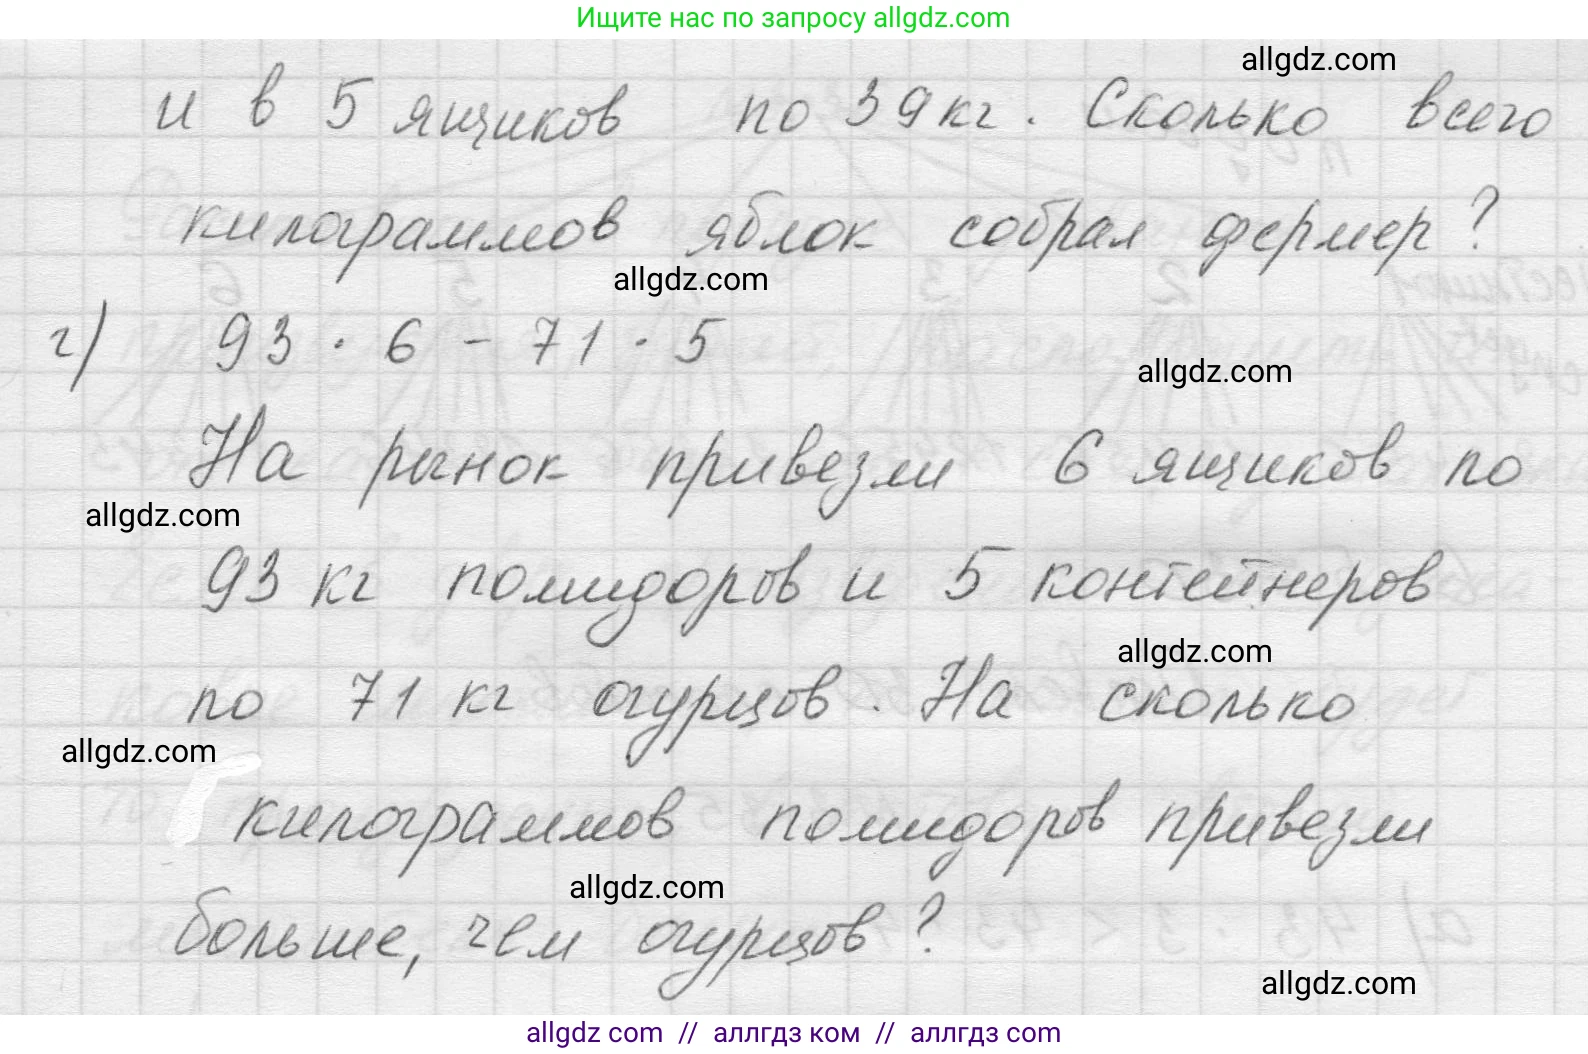 Ищите нас по запросу allgdz.com
allgdz.com
и в 5 ящиков по 39 кг. Сколько всего
килограммов яблок собрал фермер?
allgdz.com
г) 93 · 6 - 71 · 5
allgdz.com
На рынок привезли 6 ящиков по
allgdz.com
93 кг помидоров и 5 контейнеров
allgdz.com
по 71 кг огурцов. На сколько
allgdz.com
килограммов помидоров привезли
allgdz.com
больше, чем огурцов?
allgdz.com
allgdz com // аллгдз ком // аллгдз com